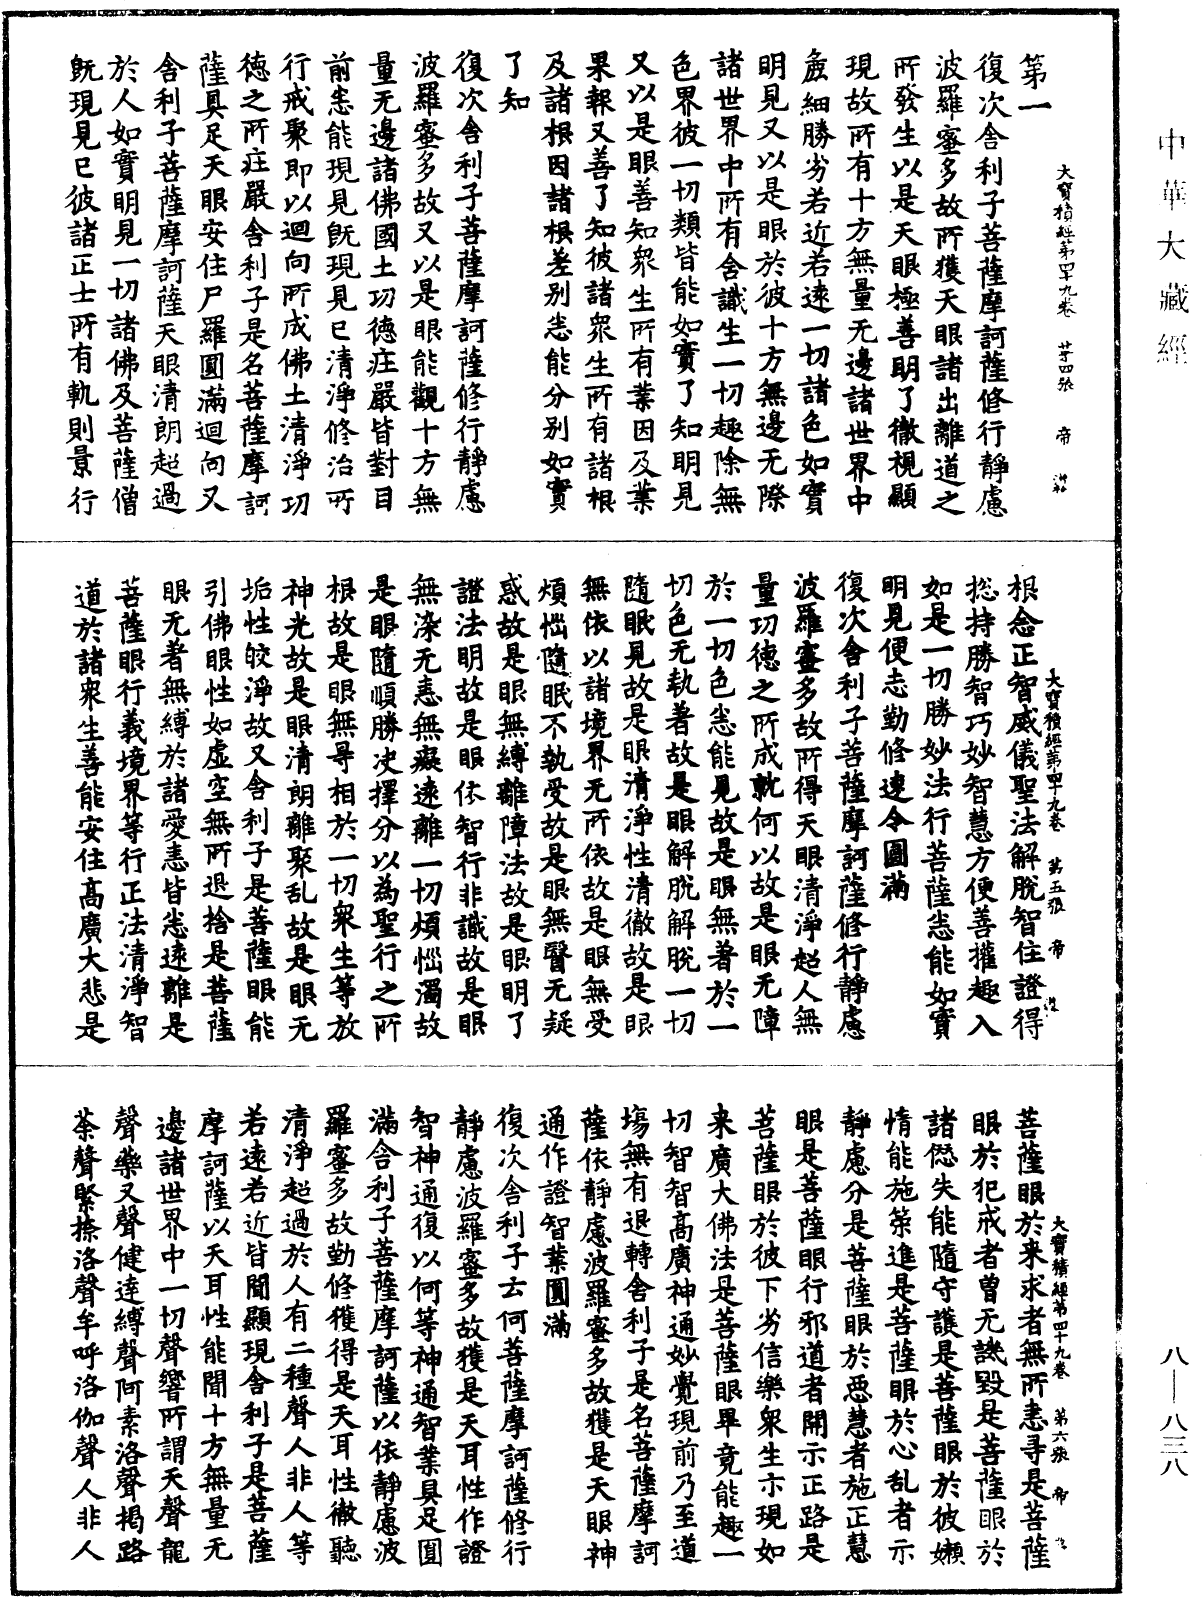 中華大藏經
第一
大寶積經第四十九卷 廿四張 帝
復次舍利子菩薩摩訶薩修行靜慮
波羅蜜多故所獲天眼諸出離道之
所發生以是天眼極善明了徹視顯
現故所有十方無量无邊諸世界中
麁細勝劣若近若遠一切諸色如實
明見又以是眼於彼十方無邊无際
諸世界中所有含識生一切趣除無
色界彼一切類皆能如實了知明見
又以是眼善知眾生所有業因及業
果報又善了知彼諸眾生所有諸根
及諸根因諸根差别悉能分别如實
了知
復次舍利子菩薩摩訶薩修行靜慮
波羅蜜多故又以是眼能觀十方無
量无邊諸佛國土功德庄嚴皆對目
前悉能現見旣現見已清淨修治所
行戒聚即以迴向所成佛土清淨功
德之所庄嚴舍利子是名菩薩摩訶
薩具足天眼安住尸羅圓滿迴向又
舍利子菩薩摩訶薩天眼清朗超過
於人如實明見一切諸佛及菩薩僧
旣現見已彼諸正士所有軌則景行
大寶積經第四十九卷 第五張 帝
根念正智威儀聖法解脫智住證得
捴持勝智巧妙智慧方便善權趣入
如是一切勝妙法行菩薩悉能如實
明見便志勤修速令圓滿
復次舍利子菩薩摩訶薩修行靜慮
波羅蜜多故所得天眼清淨超人無
量功德之所成就何以故是眼无障
於一切色悉能見故是眼無著於一
切色无執著故是眼解脫解脫一切
隨眠見故是眼清淨性清徹故是眼
無依以諸境界无所依故是眼無受
煩惱隨眠不執受故是眼無翳无疑
惑故是眼無縛離障法故是眼明了
證法明故是眼依智行非識故是眼
無染无恚無癡遠離一切煩惱濁故
是眼隨順勝決擇分以為聖行之所
根故是眼無㝵相於一切眾生等放
神光故是眼清朗離聚乱故是眼无
垢性皎淨故又舍利子是菩薩眼能
引佛眼性如虛空無所退捨是菩薩
眼无著無縛於諸愛恚皆悉遠離是
菩薩眼行義境界等行正法清淨智
道於諸眾生善能安住高廣大悲是
大寶積經第四十九卷 第六張 帝
菩薩眼於來求者無所恚㝵是菩薩
眼於犯戒者曾无譏毀是菩薩眼於
諸愆失能隨守護是菩薩眼於彼嬾
惰能施策進是菩薩眼於心乱者示
靜慮分是菩薩眼於惡慧者施正慧
眼是菩薩眼行邪道者開示正路是
菩薩眼於彼下劣信樂眾生示現如
来廣大佛法是菩薩眼畢竟能趣一
切智智高廣神通妙覺現前乃至道
場無有退轉舍利子是名菩薩摩訶
薩依靜慮波羅蜜多故獲是天眼神
通作證智業圓滿
復次舍利子云何菩薩摩訶薩修行
靜慮波羅蜜多故獲是天耳性作證
智神通復以何等神通智業具足圓
滿舍利子菩薩摩訶薩以依靜慮波
羅蜜多故勤修獲得是天耳性徹聽
清淨超過於人有二種聲人非人等
若遠若近皆聞顯現舍利子是菩薩
摩訶薩以天耳性能聞十方無量无
邊諸世界中一切聲響所謂天聲龍
聲藥叉聲健達縛聲阿素洛聲揭路
荼聲緊捺洛聲牟呼洛伽聲人非人
八—八三八